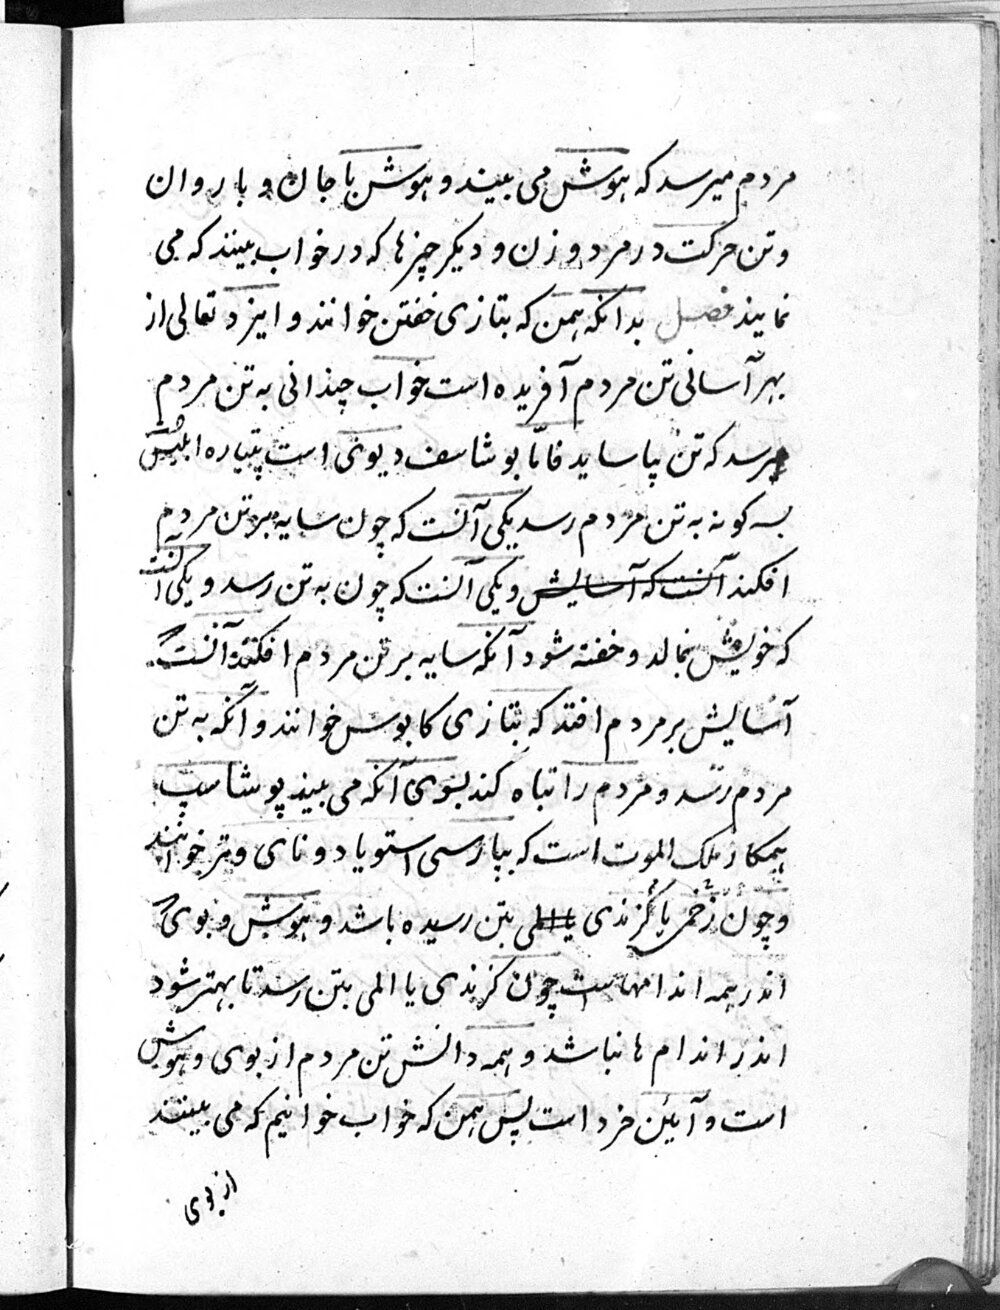 مردم میرسد که هوش می بیند و هوش با جان و با روان
و تن حرکت در مرد و زن و دیگر چیزها که در خواب بینند که می
نمایند فصل بدانکه همن که بتازی خفتن خوانند و ایزد تعالی از
بهر آسانی تن مردم آفریده است خواب چندانی به تن مردم
میرسد که تن بیاساید فامّا بوشاسف دیوی است پتیاره ابلیس
بسه کونه به تن مردم رسد یکی آنست که چون سایه بر تن مردم
افکند آنست که آسایش و یکی آنست که چون به تن رسد و یکی آنست
که خویش بمالد و خفته شود آنکه سایه بر تن مردم افکند آنست
آسایش بر مردم افتد که بتازی کابوس خوانند و آنکه به تن
مردم رسد و مردم را تباه کند بسوی آنکه می بیند بوشاسپ
همکار ملک الموت است که بپارسی استویاد و نای وتر خوانند
و چون زخمی یا گزندی یا المی بتن رسیده باشد و هوش و بوی
اندر همه اندامهاست چون کزندی یا المی بتن رسد تا بهتر شود
اندر اندام ها نباشد و همه دانش تن مردم از بوی و هوش
است و آیین خرد است پس همن که خواب خوانیم که می بینند
از بوی